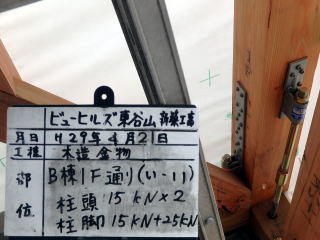 ビューヒルズ東谷山新築工事
月日 H29年4月21日
工種 木造金物
部位 B棟1F通り(い-11)
柱頭 15KN×2
柱脚 15KN+25KN